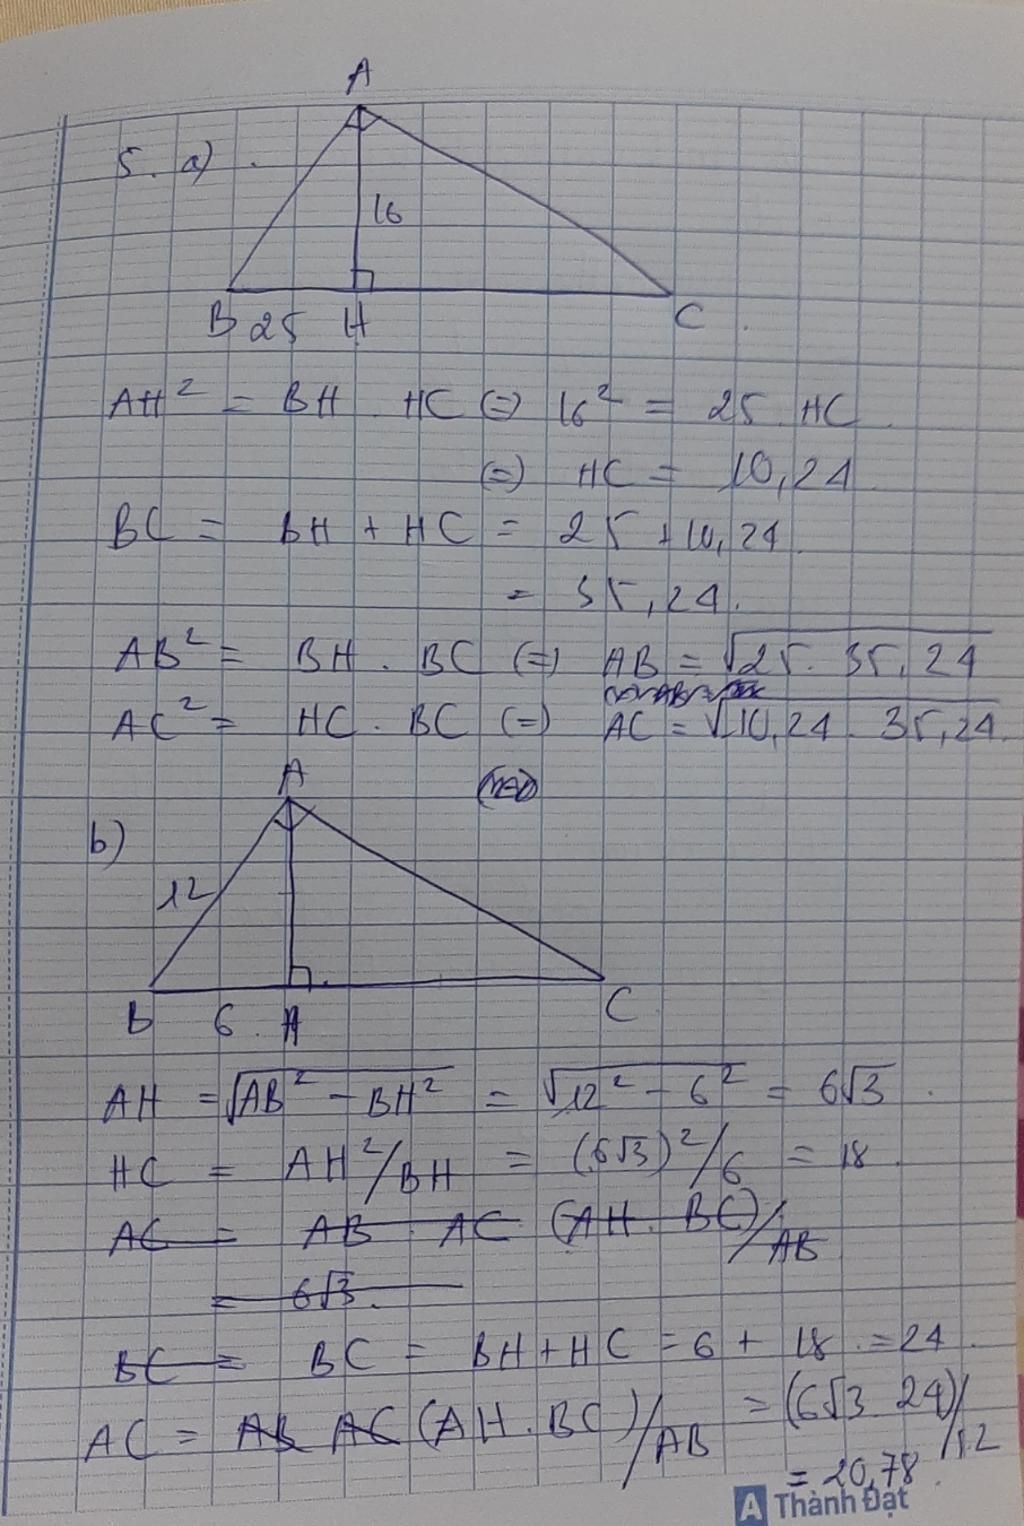 A
5. a)
16
B 25 H
C
AH² = BH . HC (=) 16² = 25 . HC
(=) HC = 10,24
BC = BH + HC = 25 + 10,24
= 35,24.
AB² = BH . BC (=) AB = √25 . 35,24
AC² = HC . BC (=) AC = √10,24 . 35,24
A
b)
12
B 6 H
C
AH = √AB² - BH² = √12² - 6² = 6√3.
HC = AH²/BH = (6√3)²/6 = 18.
AC = AB . AC (AH . BC)/AB
= 6√3.
BC = BC = BH + HC = 6 + 18 = 24.
AC = AB AC (AH . BC)/AB = (6√3 . 24)/12
= 20,78.
A Thành Đạt